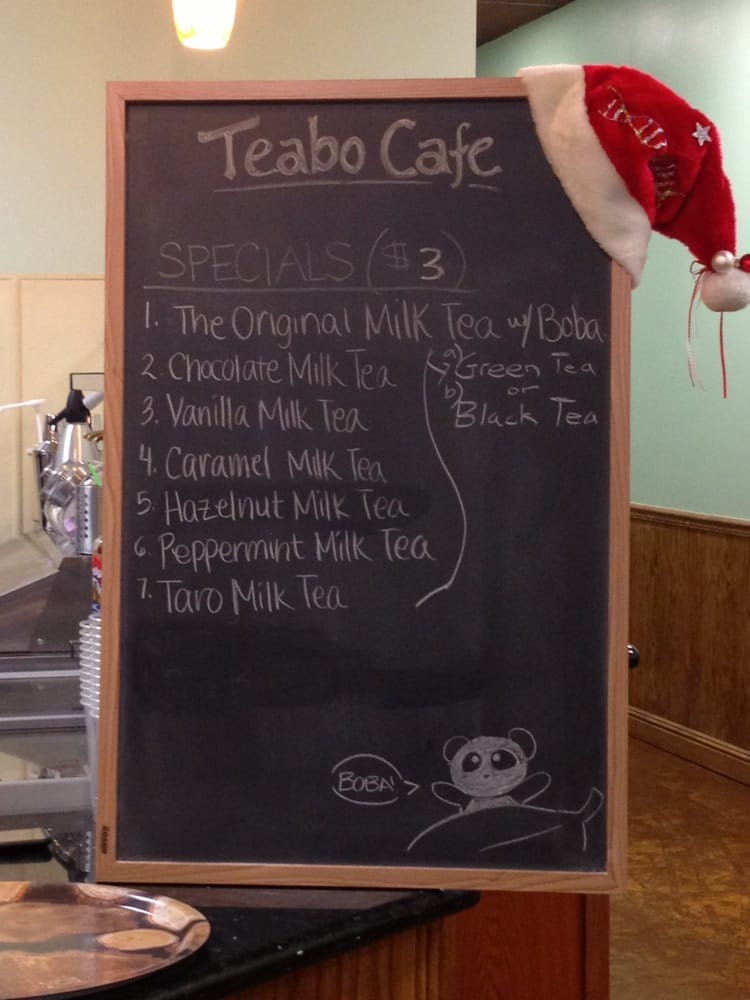 Teabo Cafe
SPECIALS ($3)
1. The Original Milk Tea w/ Boba
2. Chocolate Milk Tea
a) Green Tea
or
3. Vanilla Milk Tea
b) Black Tea
4. Caramel Milk Tea
5. Hazelnut Milk Tea
6. Peppermint Milk Tea
7. Taro Milk Tea
BOBA!